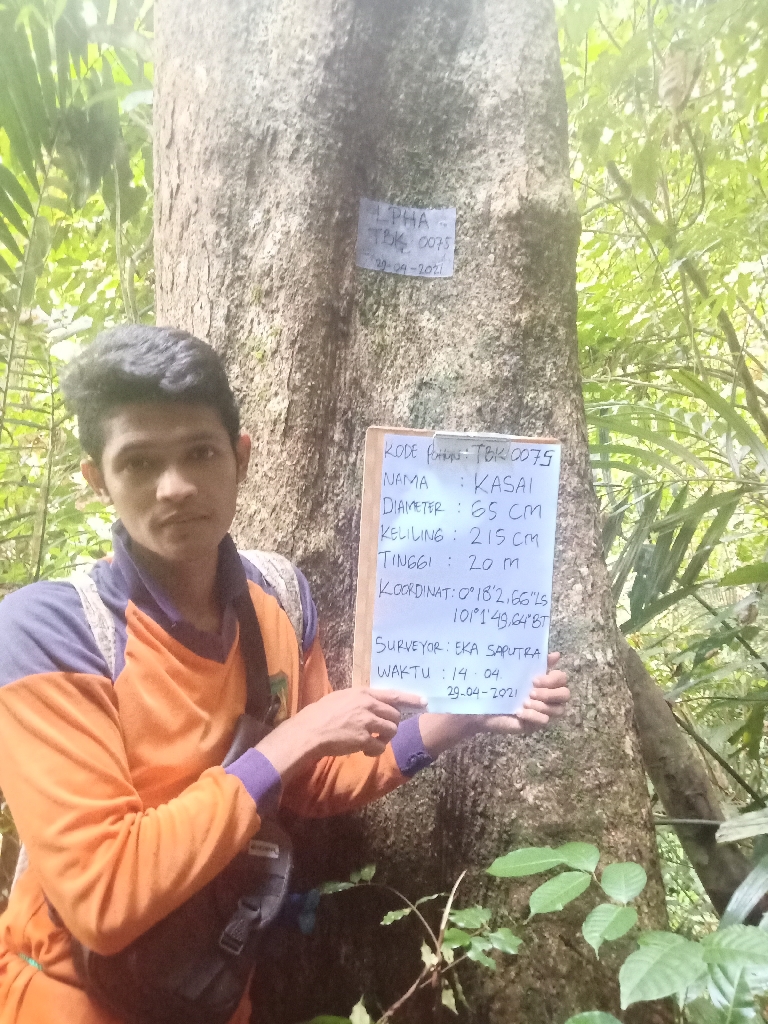 LPHA -
TBK 0075
29-04-2021
KODE POHON : TBK 0075
NAMA : KASAI
DIAMETER : 65 CM
KELILING : 215 CM
TINGGI : 20 M
KOORDINAT : 0°18'2,66"LS
101°1'49,64"BT
SURVEYOR : EKA SAPUTRA
WAKTU : 14.04
29-04-2021